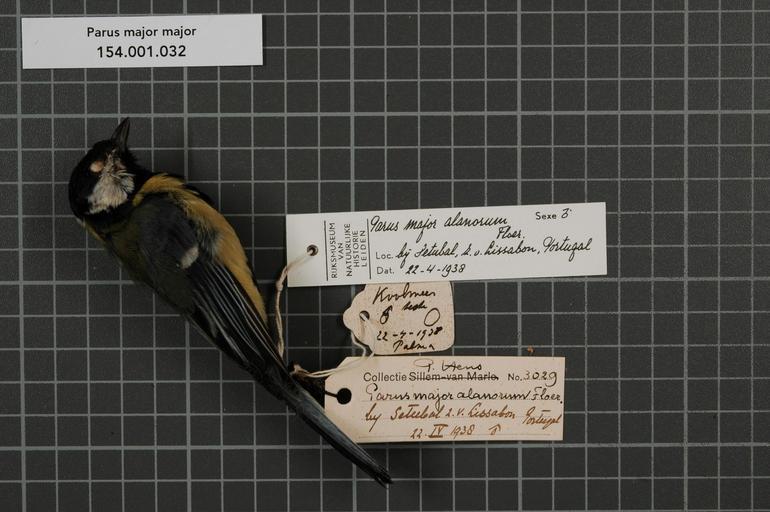 Parus major major
154.001.032
RIJKSMUSEUM
VAN
NATUURLIJKE
HISTORIE
LEIDEN
Parus major alanorum Sexe ♂
Floer.
Loc. by Setubal, z. v. Lissabon, Portugal
Dat. 22-4-1938
Koolmees
♂
22-4-1938
Palma
P. Hens
Collectie Sillem-van Marle. No. 3029
Parus major alanorum Floer.
by Setubal z. v. Lissabon Portugal
22 IV 1938 ♂